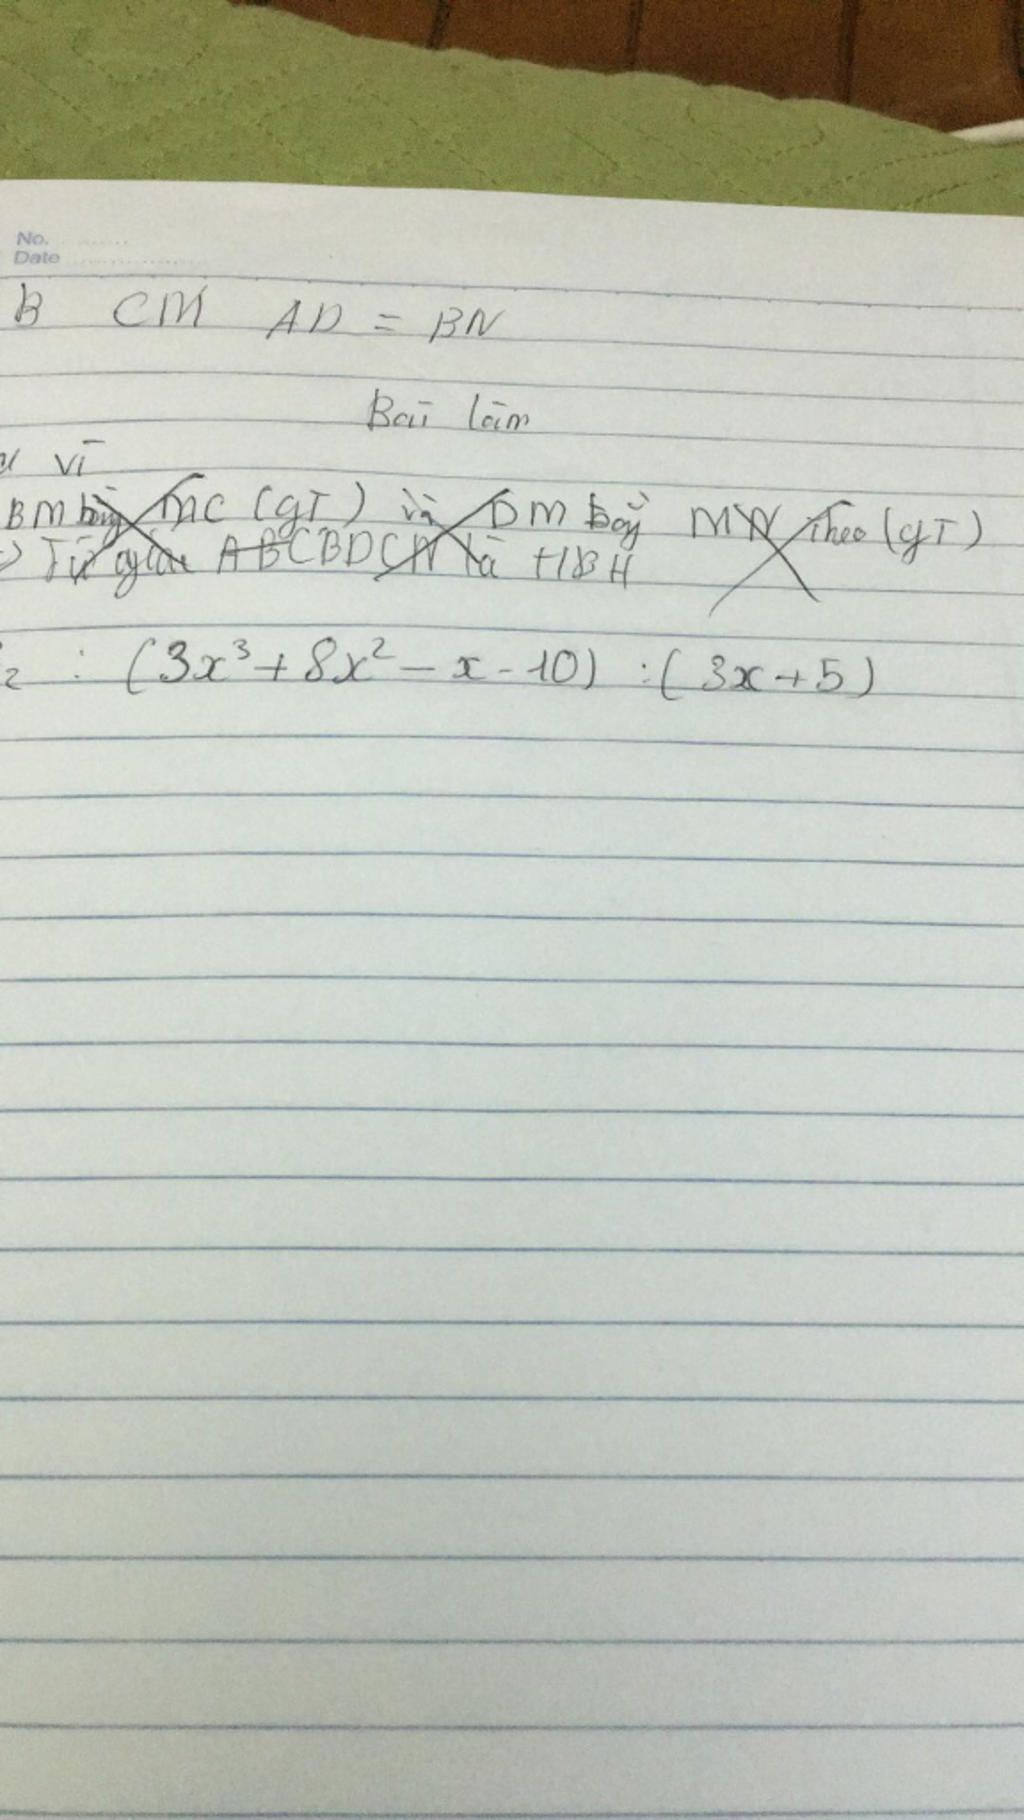 No.
Date
B CM AD = BN
Bài làm
vì
BM bằng MC (gT) và DM bằng MN theo (gT)
=> Tứ giác ABCBDCN là HBH
2 : (3x³ + 8x² - x - 10) : (3x + 5)